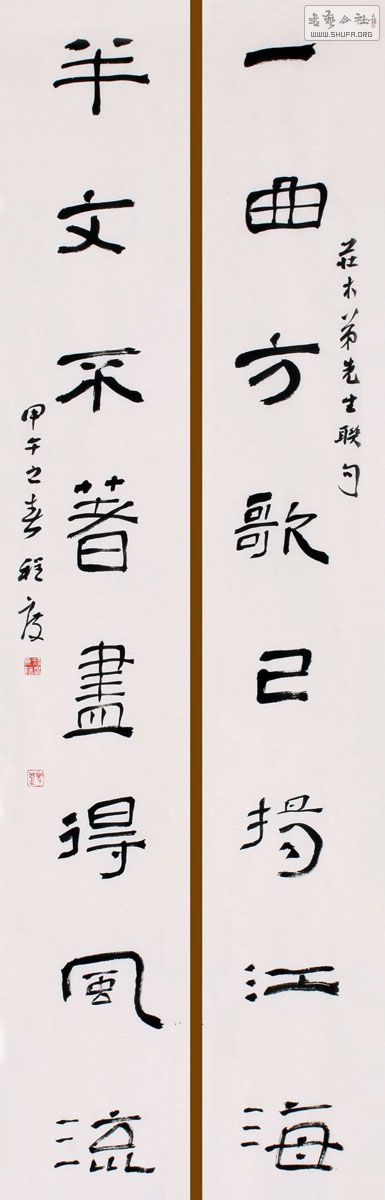 一曲方歌已揚江海
莊木弟先生聯句
半文不著盡得風流
甲午之春程度
書藝公社
WWW.SHUFA.ORG